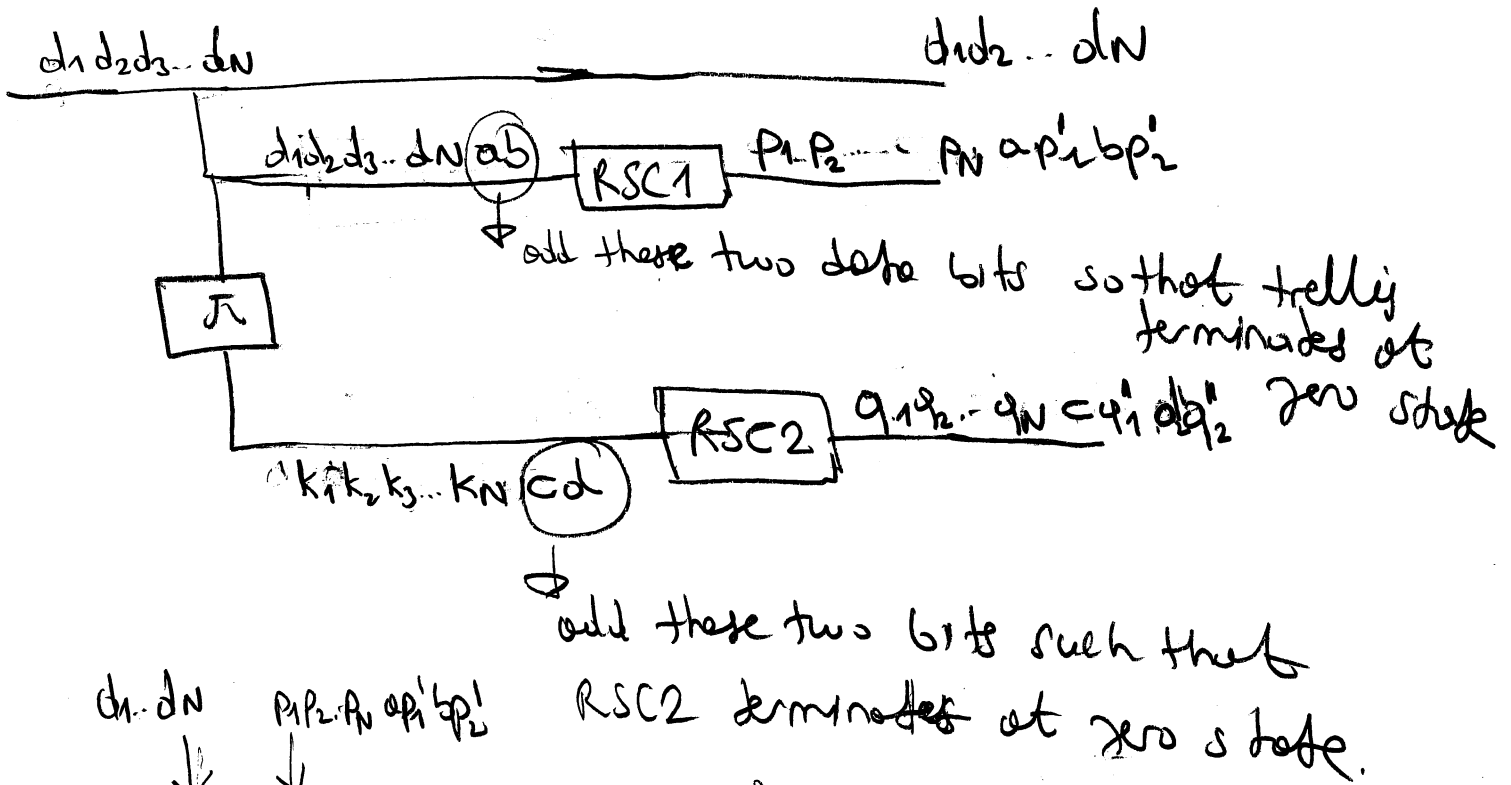 d1 d2 d3 .. dN
d1d2 .. dN
d1d2d3 .. dN ab
RSC1
P1 P2 ..... PN ap'1 bp'2
add these two data bits so that trellis
terminates at
zero state
π
k1 k2 k3 ... kN cd
RSC2
q1q2 .. qN cq'1 dq'2
add these two bits such that
RSC2 terminates at zero state.
d1 .. dN P1P2 .. PN ap'1 bp'2